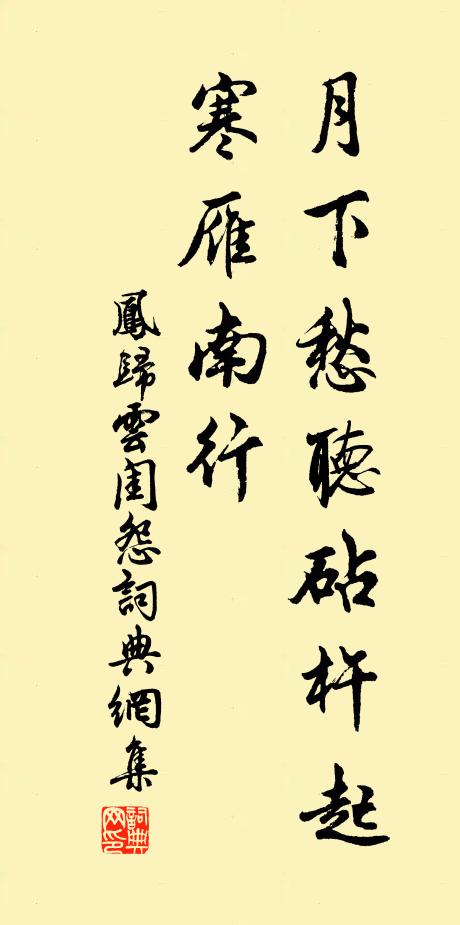 月下愁聽砧杵起
寒雁南行
鳳歸雲閨怨詞典網集
詞典
网印